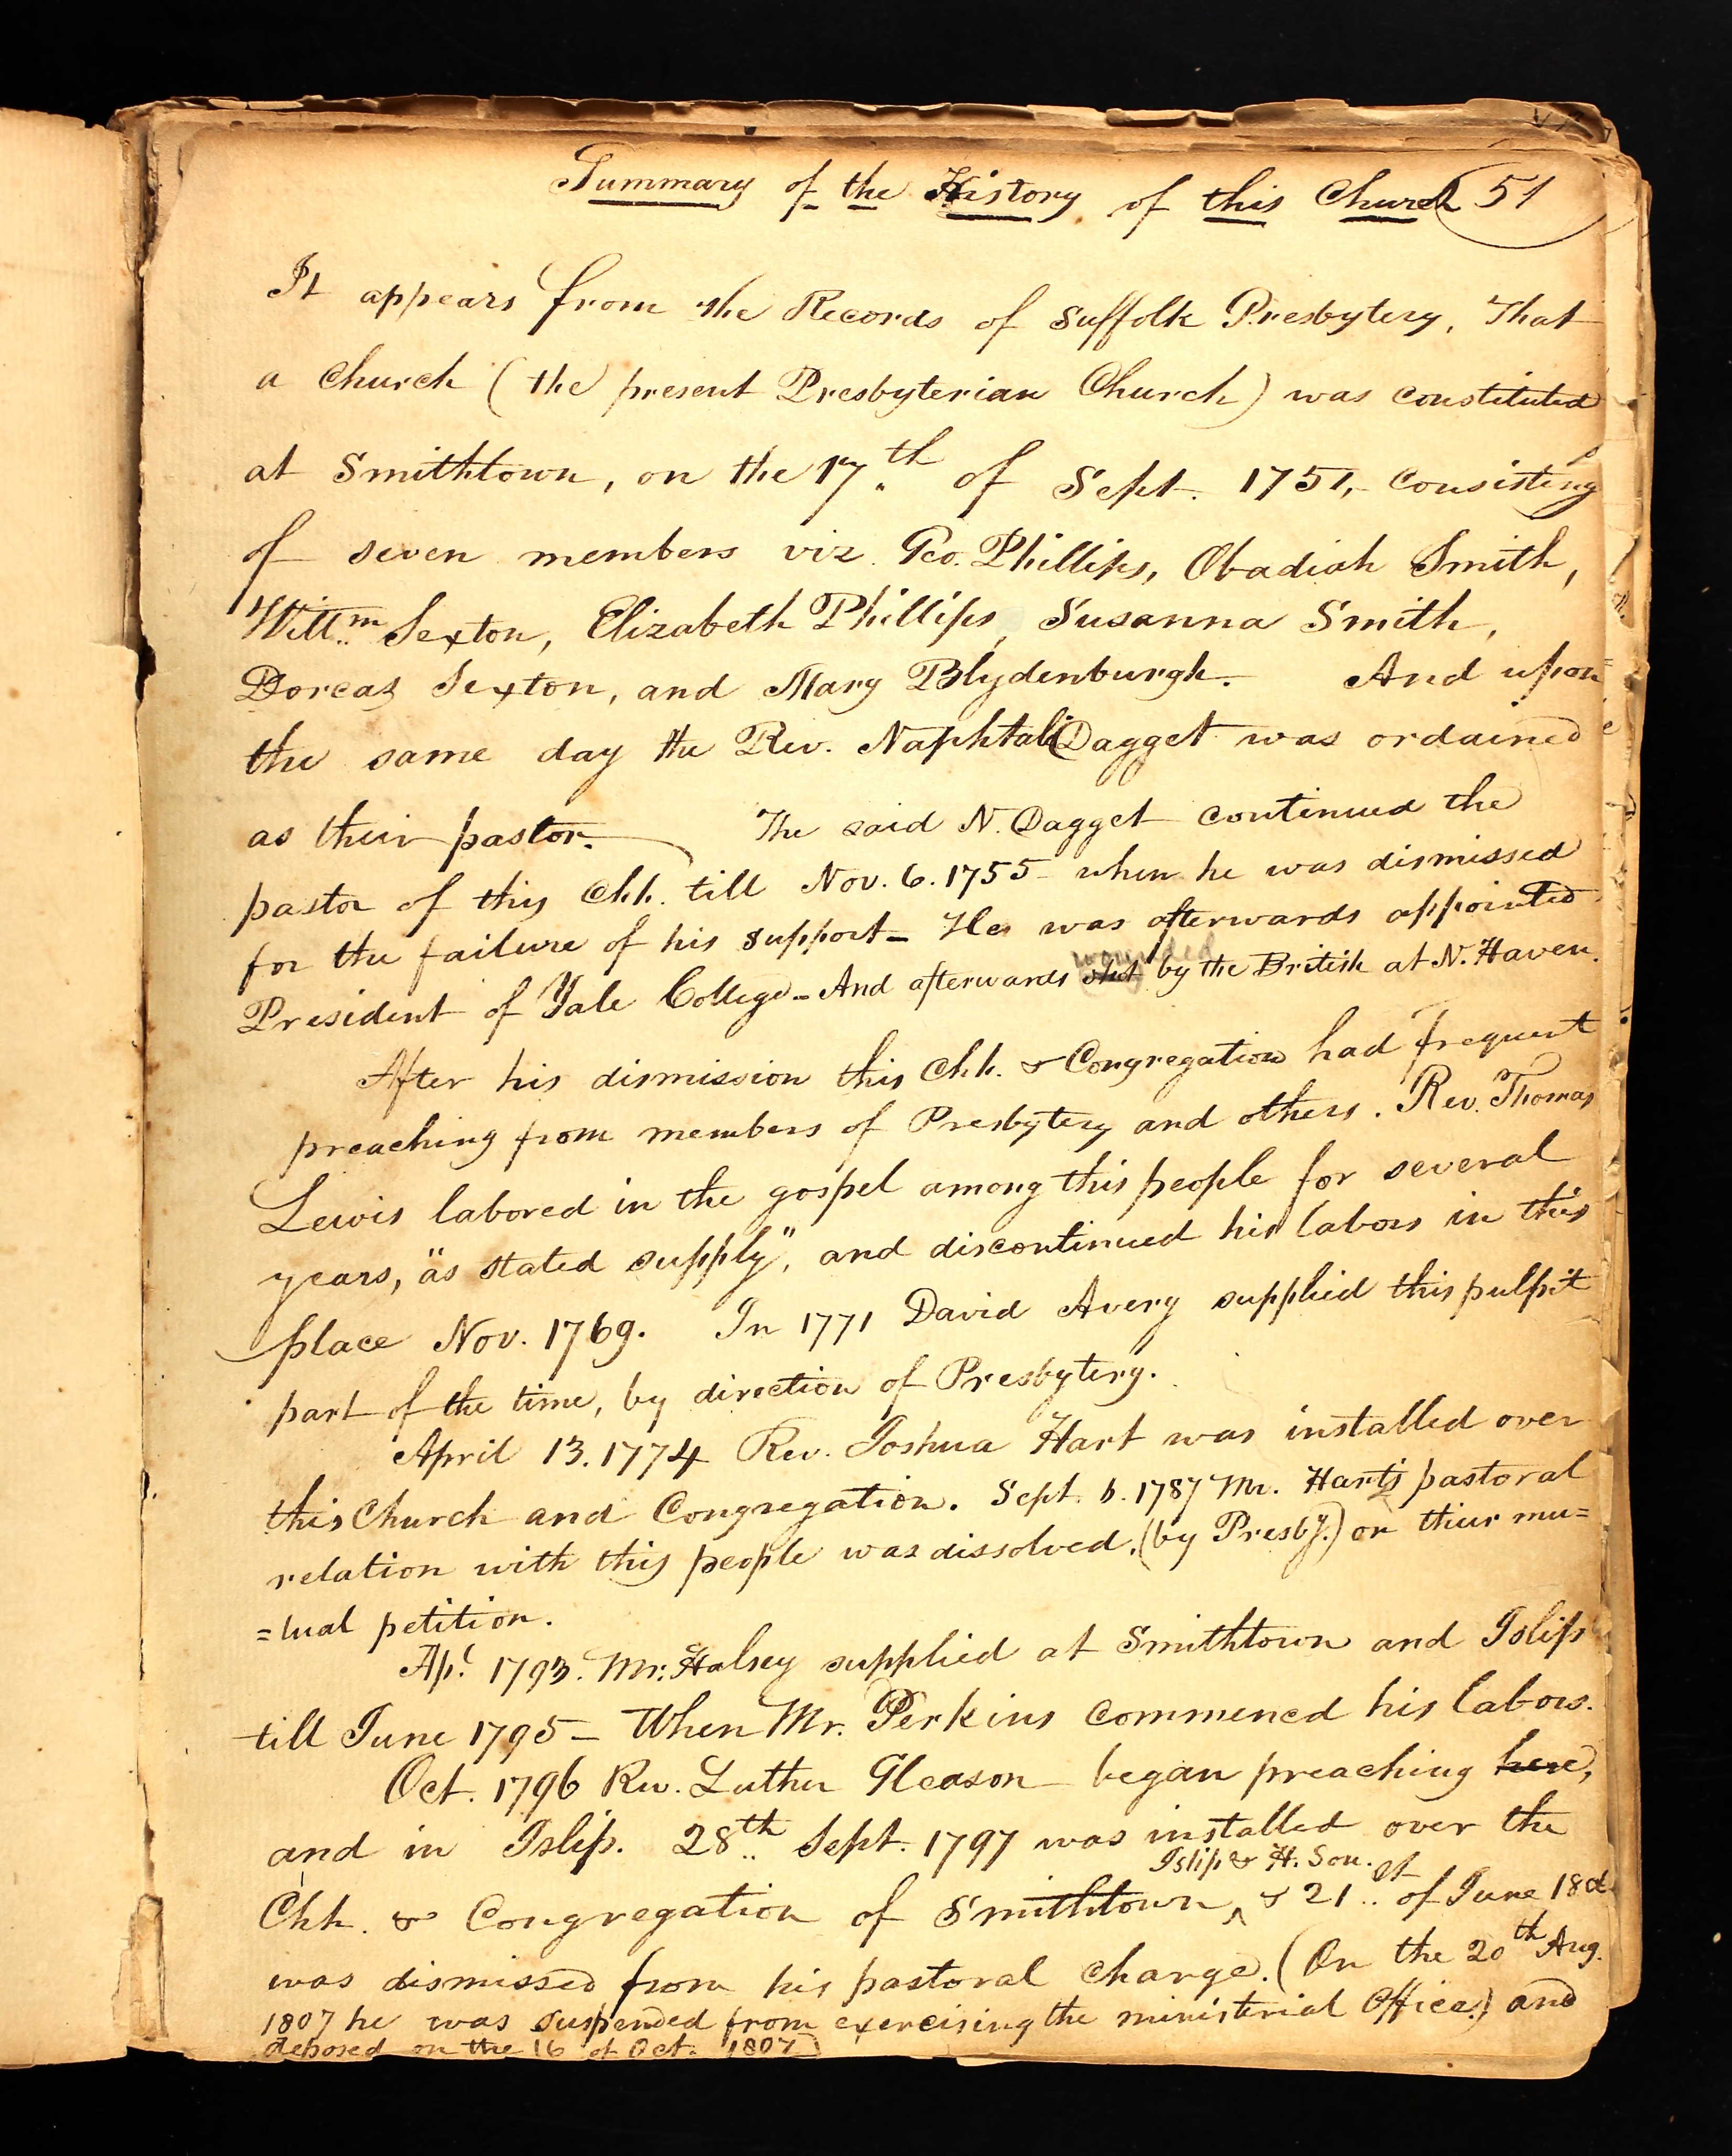 Summary of the History of this Church 51
It appears from the Records of Suffolk Presbytery, That
a Church (the present Presbyterian Church) was constituted
at Smithtown, on the 17th of Sept. 1751, consisting
of seven members viz. Geo. Phillips, Obadiah Smith,
Willm Sexton, Elizabeth Phillips, Susanna Smith,
Dorcas Sexton, and Mary Blydenburgh. And upon
the same day the Rev. Naphtali Dagget was ordained
as their pastor. The said N. Dagget continued the
pastor of this Chh. till Nov. 6. 1755 - when he was dismissed
for the failure of his support - He was afterwards appointed
wounded
President of Yale College - And afterwards shot by the British at N. Haven.
After his dismission this Chh. & Congregation had frequent
preaching from members of Presbytery and others. Rev. Thomas
Lewis labored in the gospel among this people for several
years, "as stated supply", and discontinued his labors in this
place Nov. 1769. In 1771 David Avery supplied this pulpit
part of the time, by direction of Presbytery.
April 13. 1774 Rev. Joshua Hart was installed over
this Church and Congregation. Sept. 6. 1787 Mr. Hart's pastoral
relation with this people was dissolved, (by Presby.) on their mu=
=tual petition.
Apl 1793. Mr. Halsey supplied at Smithtown and Islip
till June 1795 - When Mr. Perkins commenced his labors.
Oct. 1796 Rev. Luther Gleason began preaching here,
and in Islip. 28th Sept. 1797 was installed over the
Islip & H. Sou.
Chh. & Congregation of Smithtown ^ & 21st of June
was dismissed from his pastoral charge. (On the 20th Aug.
1807 he was suspended from exercising the ministerial Office.) and
deposed on the 16 of Oct. 1807)